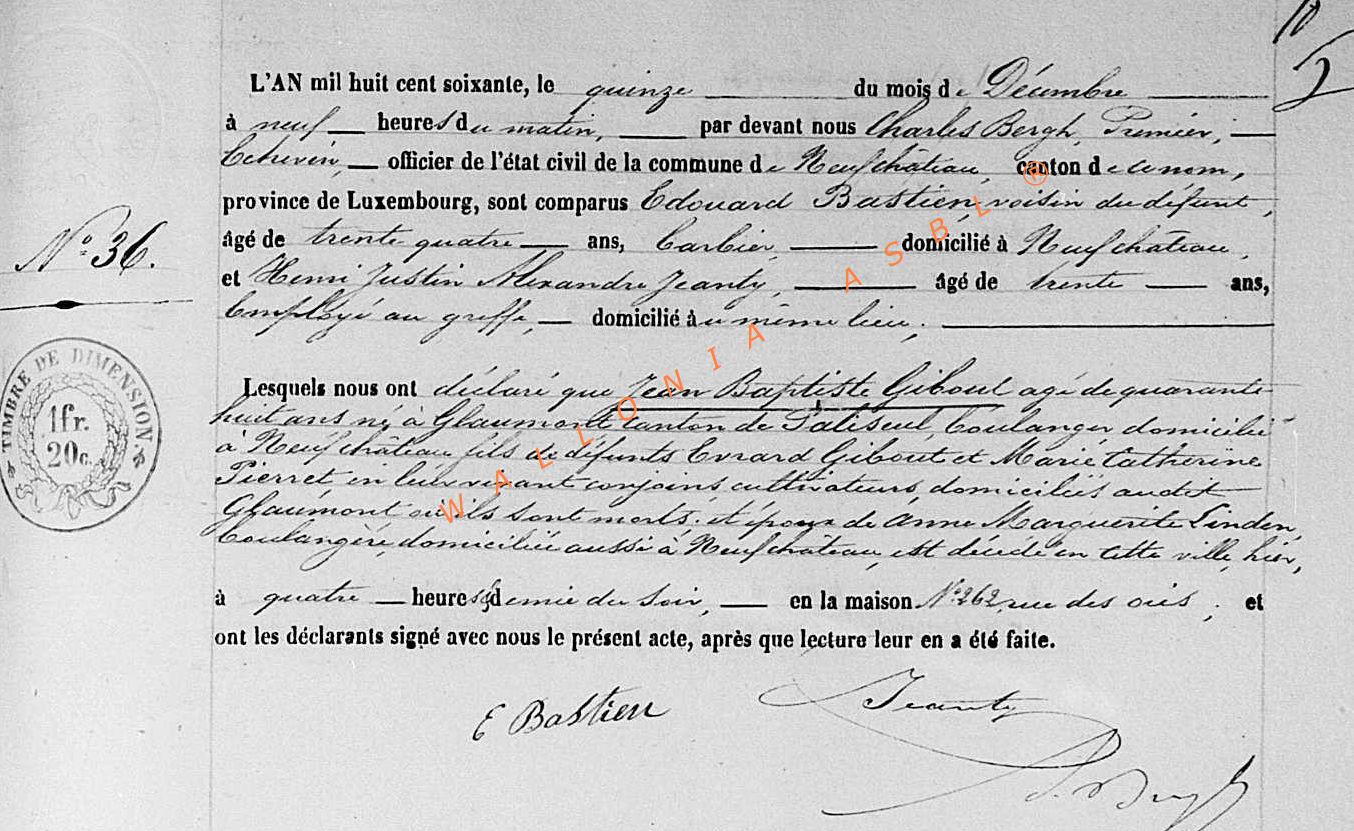 10
L'AN mil huit cent soixante, le quinze du mois de Décembre
à neuf heures du matin, par devant nous Charles Bergh, Premier,
Echevin, officier de l'état civil de la commune de Neufchâteau, canton de ce nom,
province de Luxembourg, sont comparus Edouard Bastien, voisin du défunt,
âgé de trente quatre ans, barbier, domicilié à Neufchâteau,
et Henri Justin Alexandre Jeanty, âgé de trente ans,
Employé au greffe, domicilié au même lieu;
N° 36.
TIMBRE DE DIMENSION.
1 fr.
20 c.
Lesquels nous ont déclaré que Jean Baptiste Giboul agé de quarante
huit ans né à Glaumont canton de Paliseul, boulanger domicilié
à Neufchâteau fils de défunts Evrard Giboul et Marie Catherine
Pierret, en leur vivant conjoins, cultivateurs, domiciliés audit
Glaumont où ils sont morts. et époux de Anne Marguerite Linden,
boulangère, domiciliée aussi à Neufchâteau, est décédé en cette ville, hier,
à quatre heures & demie du Soir, en la maison N° 262, rue des oies, et
ont les déclarants signé avec nous le présent acte, après que lecture leur en a été faite.
E Bastien
Jeanty
WALLONIA ASBL ®